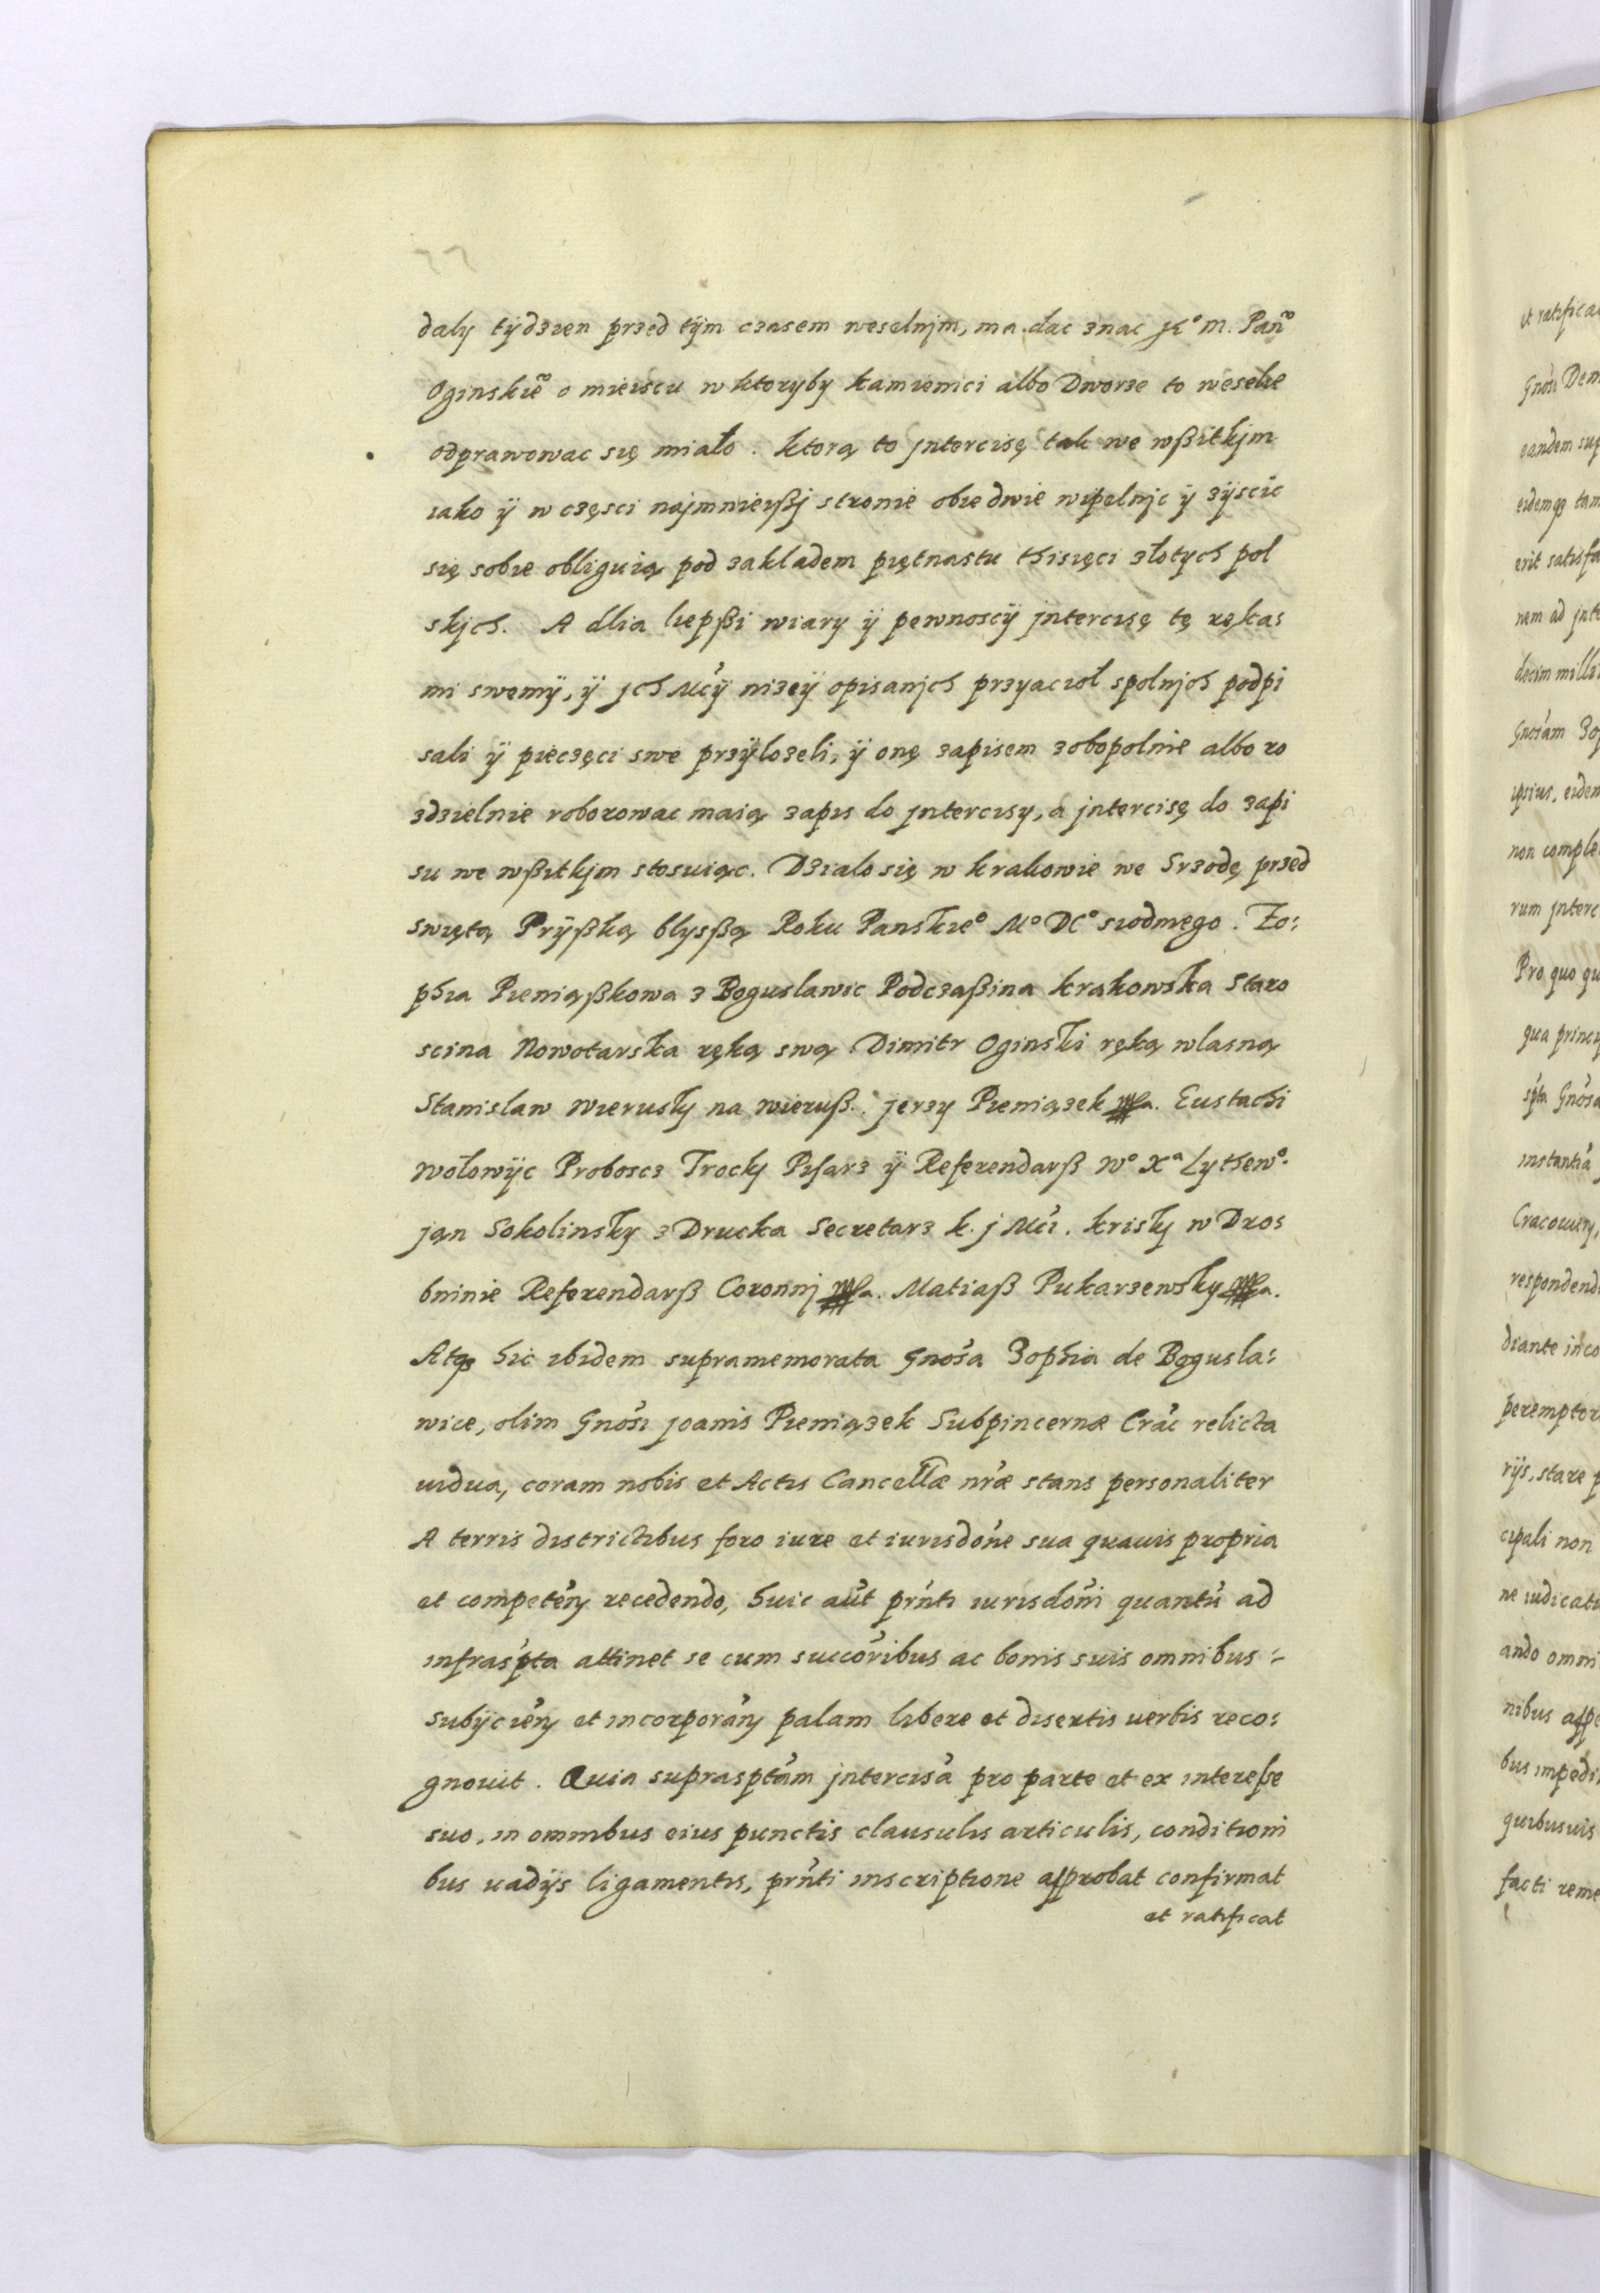 daly tÿdzien przed tÿm czasem weselnjm, ma dac znac Je° m. Pan°
Oginskie° o mieiscu w ktoryby kamienici albo Dworze to wesele
odprawowac się miało. ktorą to jntercisę tak we wßitkjm
iako ÿ w częsci najmnieißj stronie obiedwie wipelnjc ÿ zÿscic
się sobie obliguią pod zakladem piętnastu thisięci złotych pol
skjch. A dlia liepßi wiary ÿ pewnosciÿ jntercisę tę ręka=
mi swemÿ, ÿ jch Mćÿ nizeÿ opisanjch przyacioł spolnjch podpi
sali ÿ pieczęci swe przÿlozeli, ÿ onę zapisem zobopolnie albo ro
zdzielnie roborowac maią zapis do jntercisy, a jntercisę do zapi
su we wßitkjm stosuiąc. Dzialo się w krakowie we Srzodę przed
swiętą Prÿßką blysßą Roku Panskie° M° DC° siodmego. Zo=
phia Pieniąßkowa z Boguslawic Podczaßina krakowska Staro
scina Nowotarska ręką swą Dimitr Oginski ręką wlasną
Stanislaw Wierusky na wieruß. jerzy Pieniązek mpa. Eustachi
Wołowÿc Proboscz Trocky Pisarz ÿ Referendarß W° Xa Lythew°.
jan Sokolinsky z Drucka Secretarz k. j Mći. krisky w Dro=
bninie Referendarß Coronnj mpa. Matiaß Pukarzewsky mpa.
Atq3 hic ibidem supramemorata Gnośa Zophia de Bogusla=
wice, olim Gnośi joanis Pieniązek Subpincernæ Crac relicta
uidua, coram nobis et Actis Cancellæ nræ stans personaliter
A terris districtibus foro iure et iurisdone sua quauis propria
et competen recedendo, huic aut prnti iurisdoni quantu ad
infraspta attinet se cum succoribus ac bonis suis omnibus =
subÿcien et incorporan palam libere et disertis uerbis reco=
gnouit. Quia suprasptam jntercisa pro parte et ex intereße
suo, in omnibus eius punctis clausulis articulis, conditioni
bus uadÿs ligamentis, prnti inscriptione approbat confirmat
et ratificat
et ratifica
Gnosi Dem
eandem sup
eidemq3 tam
erit satisfa
nem ad jnte
decim milli
Gnosam Zop
ipsius, eidem
non comple
rum jnterc
Pro quo qu
qua princip
spta Gnosa
instantia
Cracouien,
respondend
diante inco
peremptor
rÿs, stare p
cipali non
ne iudicat
ando omni
nibus appe
bus impedi
quibusuis
facti reme